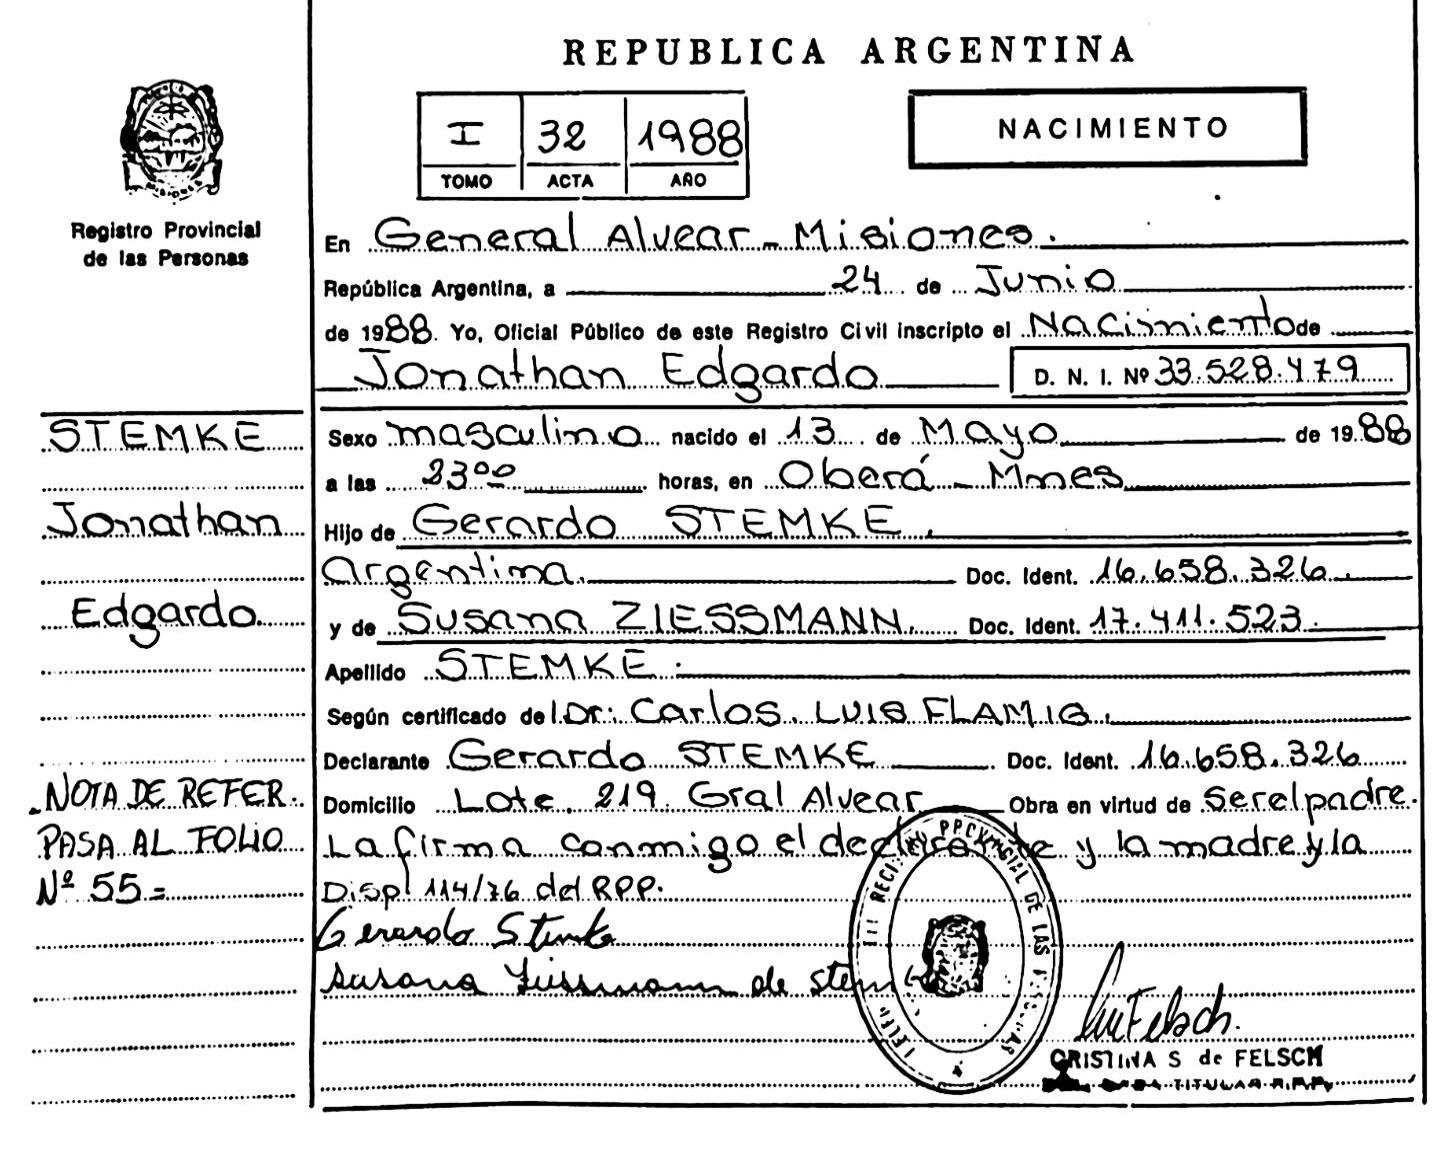 REPUBLICA ARGENTINA
I 32 1988
TOMO ACTA AÑO
NACIMIENTO
MISIONES
Registro Provincial
de las Personas
En General Alvear - Misiones.
República Argentina, a 24 de Junio
de 1988. Yo, Oficial Público de este Registro Civil inscripto el Nacimiento de
Jonathan Edgardo D. N. I. Nº 33.528.479
STEMKE
Jonathan
Edgardo
Sexo masculino nacido el 13 de Mayo de 1988
a las 23⁰⁰ horas, en Oberá - Mnes
Hijo de Gerardo STEMKE.
Argentina. Doc. Ident. 16.658.326.
y de Susana ZIESSMANN. Doc. Ident. 17.411.523.
Apellido STEMKE.
Según certificado del Dr: Carlos. LUIS FLAMIG.
Declarante Gerardo STEMKE Doc. Ident. 16.658.326
Domicilio Lote. 219 Gral Alvear Obra en virtud de Serelpadre.
La firma conmigo el declarante y la madre y la
Disp. 114/76 del RPP.
NOTA DE REFER.
PASA AL FOLIO
Nº 55=
Gerardo Stemke
Susana Ziessmann de Stemke
REGISTRO PROVINCIAL DE LAS PERSONAS
CRISTINA S de FELSCH
TITULAR R.P.P.